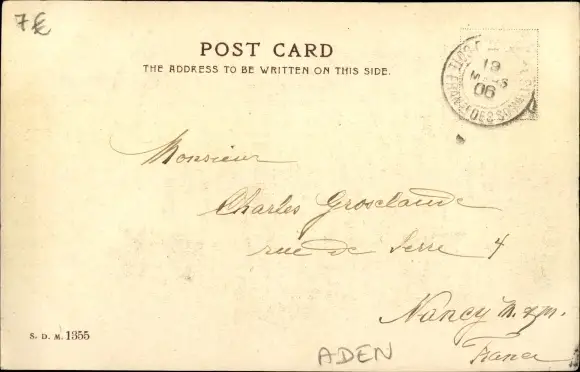 7€
POST CARD
THE ADDRESS TO BE WRITTEN ON THIS SIDE.
19
MARS
06
Monsieur
Charles Grosclaude
rue de Serre 4
Nancy M. & M.
France
S. D. M. 1355
ADEN